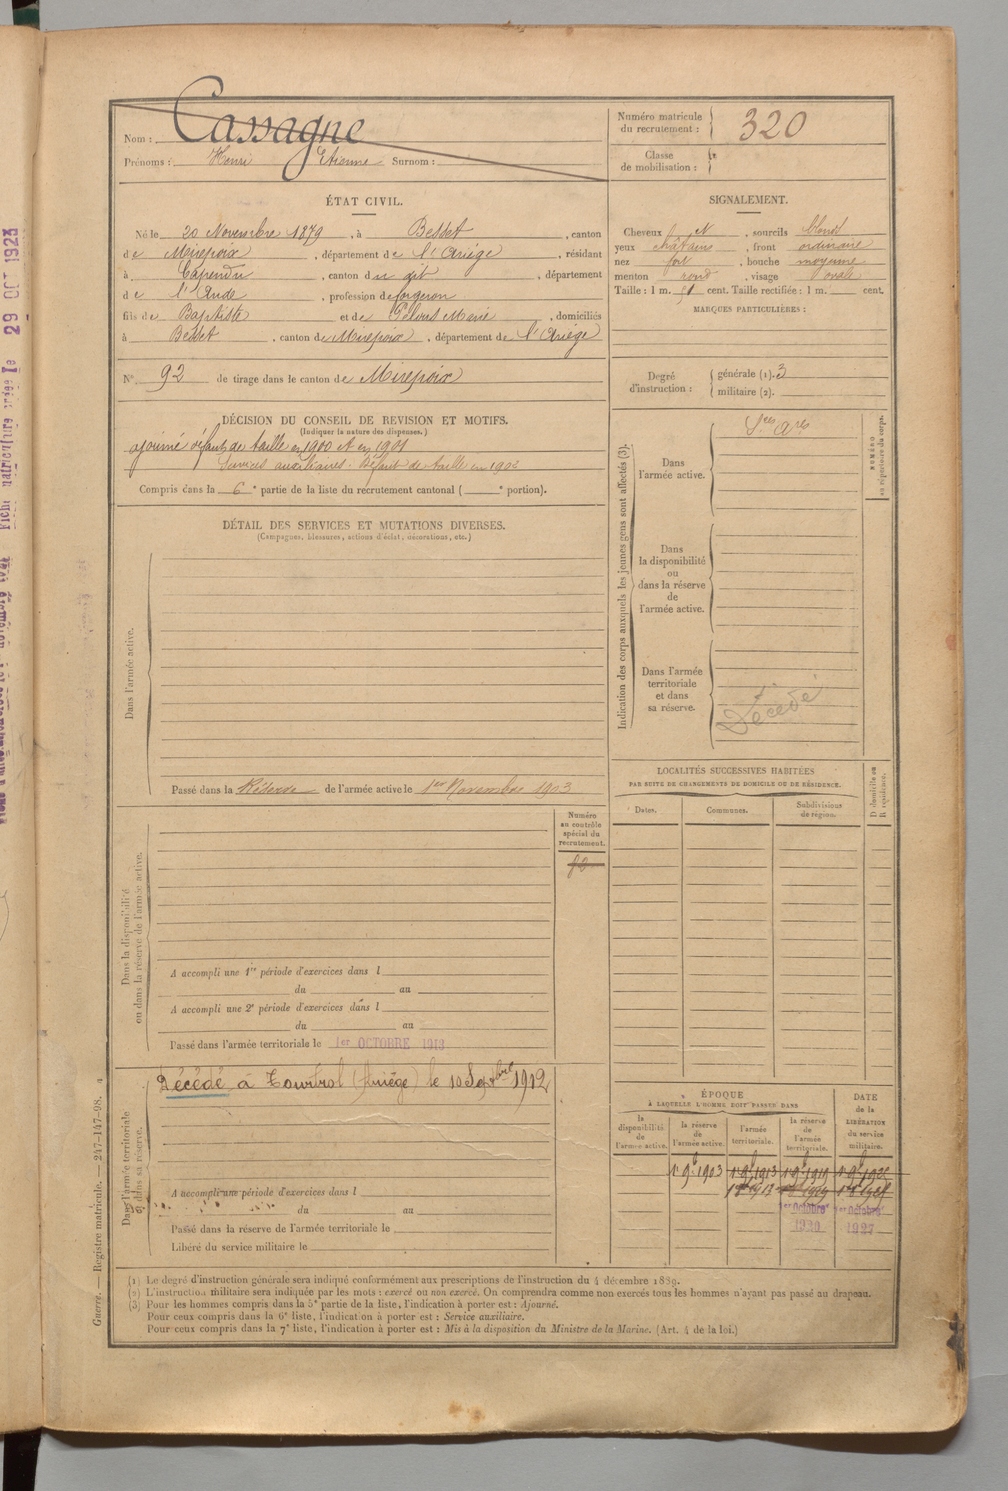 29 OCT 1923
Nom : Cassagne
Prénoms : Henri Etienne Surnom :
Numéro matricule du recrutement : 320
Classe de mobilisation :
ÉTAT CIVIL.
Né le 20 Novembre 1879, à Besset, canton
de Mirepoix, département de l'Ariège, résidant
à Capendu, canton du dit, département
de l'Aude, profession de forgeron
fils de Baptiste et de Marie, domiciliés
à Besset, canton de Mirepoix, département de l'Ariège
N° 92 de tirage dans le canton de Mirepoix
SIGNALEMENT.
Cheveux et, sourcils blond
yeux châtains, front ordinaire
nez fort, bouche moyenne
menton rond, visage ovale
Taille : 1 m. 51 cent. Taille rectifiée : 1 m. cent.
MARQUES PARTICULIÈRES :
Degré d'instruction : générale (1). 3
militaire (2).
DÉCISION DU CONSEIL DE REVISION ET MOTIFS.
(Indiquer la nature des dispenses.)
ajourné défaut de taille en 1900 et en 1901
Services auxiliaires. Défaut de taille en 1902
Compris dans la 6e partie de la liste du recrutement cantonal ( e portion).
DÉTAIL DES SERVICES ET MUTATIONS DIVERSES.
(Campagnes, blessures, actions d'éclat, décorations, etc.)
Dans l'armée active.
Passé dans la Réserve de l'armée active le 1er Novembre 1903
Indication des corps auxquels les jeunes gens sont affectés (3).
Dans l'armée active.
NUMÉRO au répertoire du corps.
Dans la disponibilité ou dans la réserve de l'armée active.
Dans l'armée territoriale et dans sa réserve.
Décédé
LOCALITÉS SUCCESSIVES HABITÉES
PAR SUITE DE CHANGEMENTS DE DOMICILE OU DE RÉSIDENCE.
Dates.
Communes.
Subdivisions de région.
D domicile ou R résidence.
Numéro au contrôle spécial du recrutement.
Dans la disponibilité ou dans la réserve de l'armée active.
A accompli une 1re période d'exercices dans l
du au
A accompli une 2e période d'exercices dans l
du au
Passé dans l'armée territoriale le 1er OCTOBRE 1913
Décédé à Tourtrol (Ariège) le 10 Septbre 1912
Dans l'armée territoriale et dans sa réserve.
A accompli une période d'exercices dans l
du au
Passé dans la réserve de l'armée territoriale le
Libéré du service militaire le
ÉPOQUE
à LAQUELLE L'HOMME DOIT PASSER DANS
la disponibilité de l'armée active.
la réserve de l'armée active.
l'armée territoriale.
la réserve de l'armée territoriale.
DATE de la LIBÉRATION du service militaire.
1er 9b 1903 1er 9b 1913 1er 9b 1919
1er Octobre 1920
1er Octobre 1927
(1) Le degré d'instruction générale sera indiqué conformément aux prescriptions de l'instruction du 4 décembre 1889.
(2) L'instruction militaire sera indiquée par les mots : exercé ou non exercé. On comprendra comme non exercés tous les hommes n'ayant pas passé au drapeau.
(3) Pour les hommes compris dans la 5e partie de la liste, l'indication à porter est : Ajourné.
Pour ceux compris dans la 6e liste, l'indication à porter est : Service auxiliaire.
Pour ceux compris dans la 7e liste, l'indication à porter est : Mis à la disposition du Ministre de la Marine. (Art. 4 de la loi.)
Guerre. — Registre matricule. — 247-147-98.